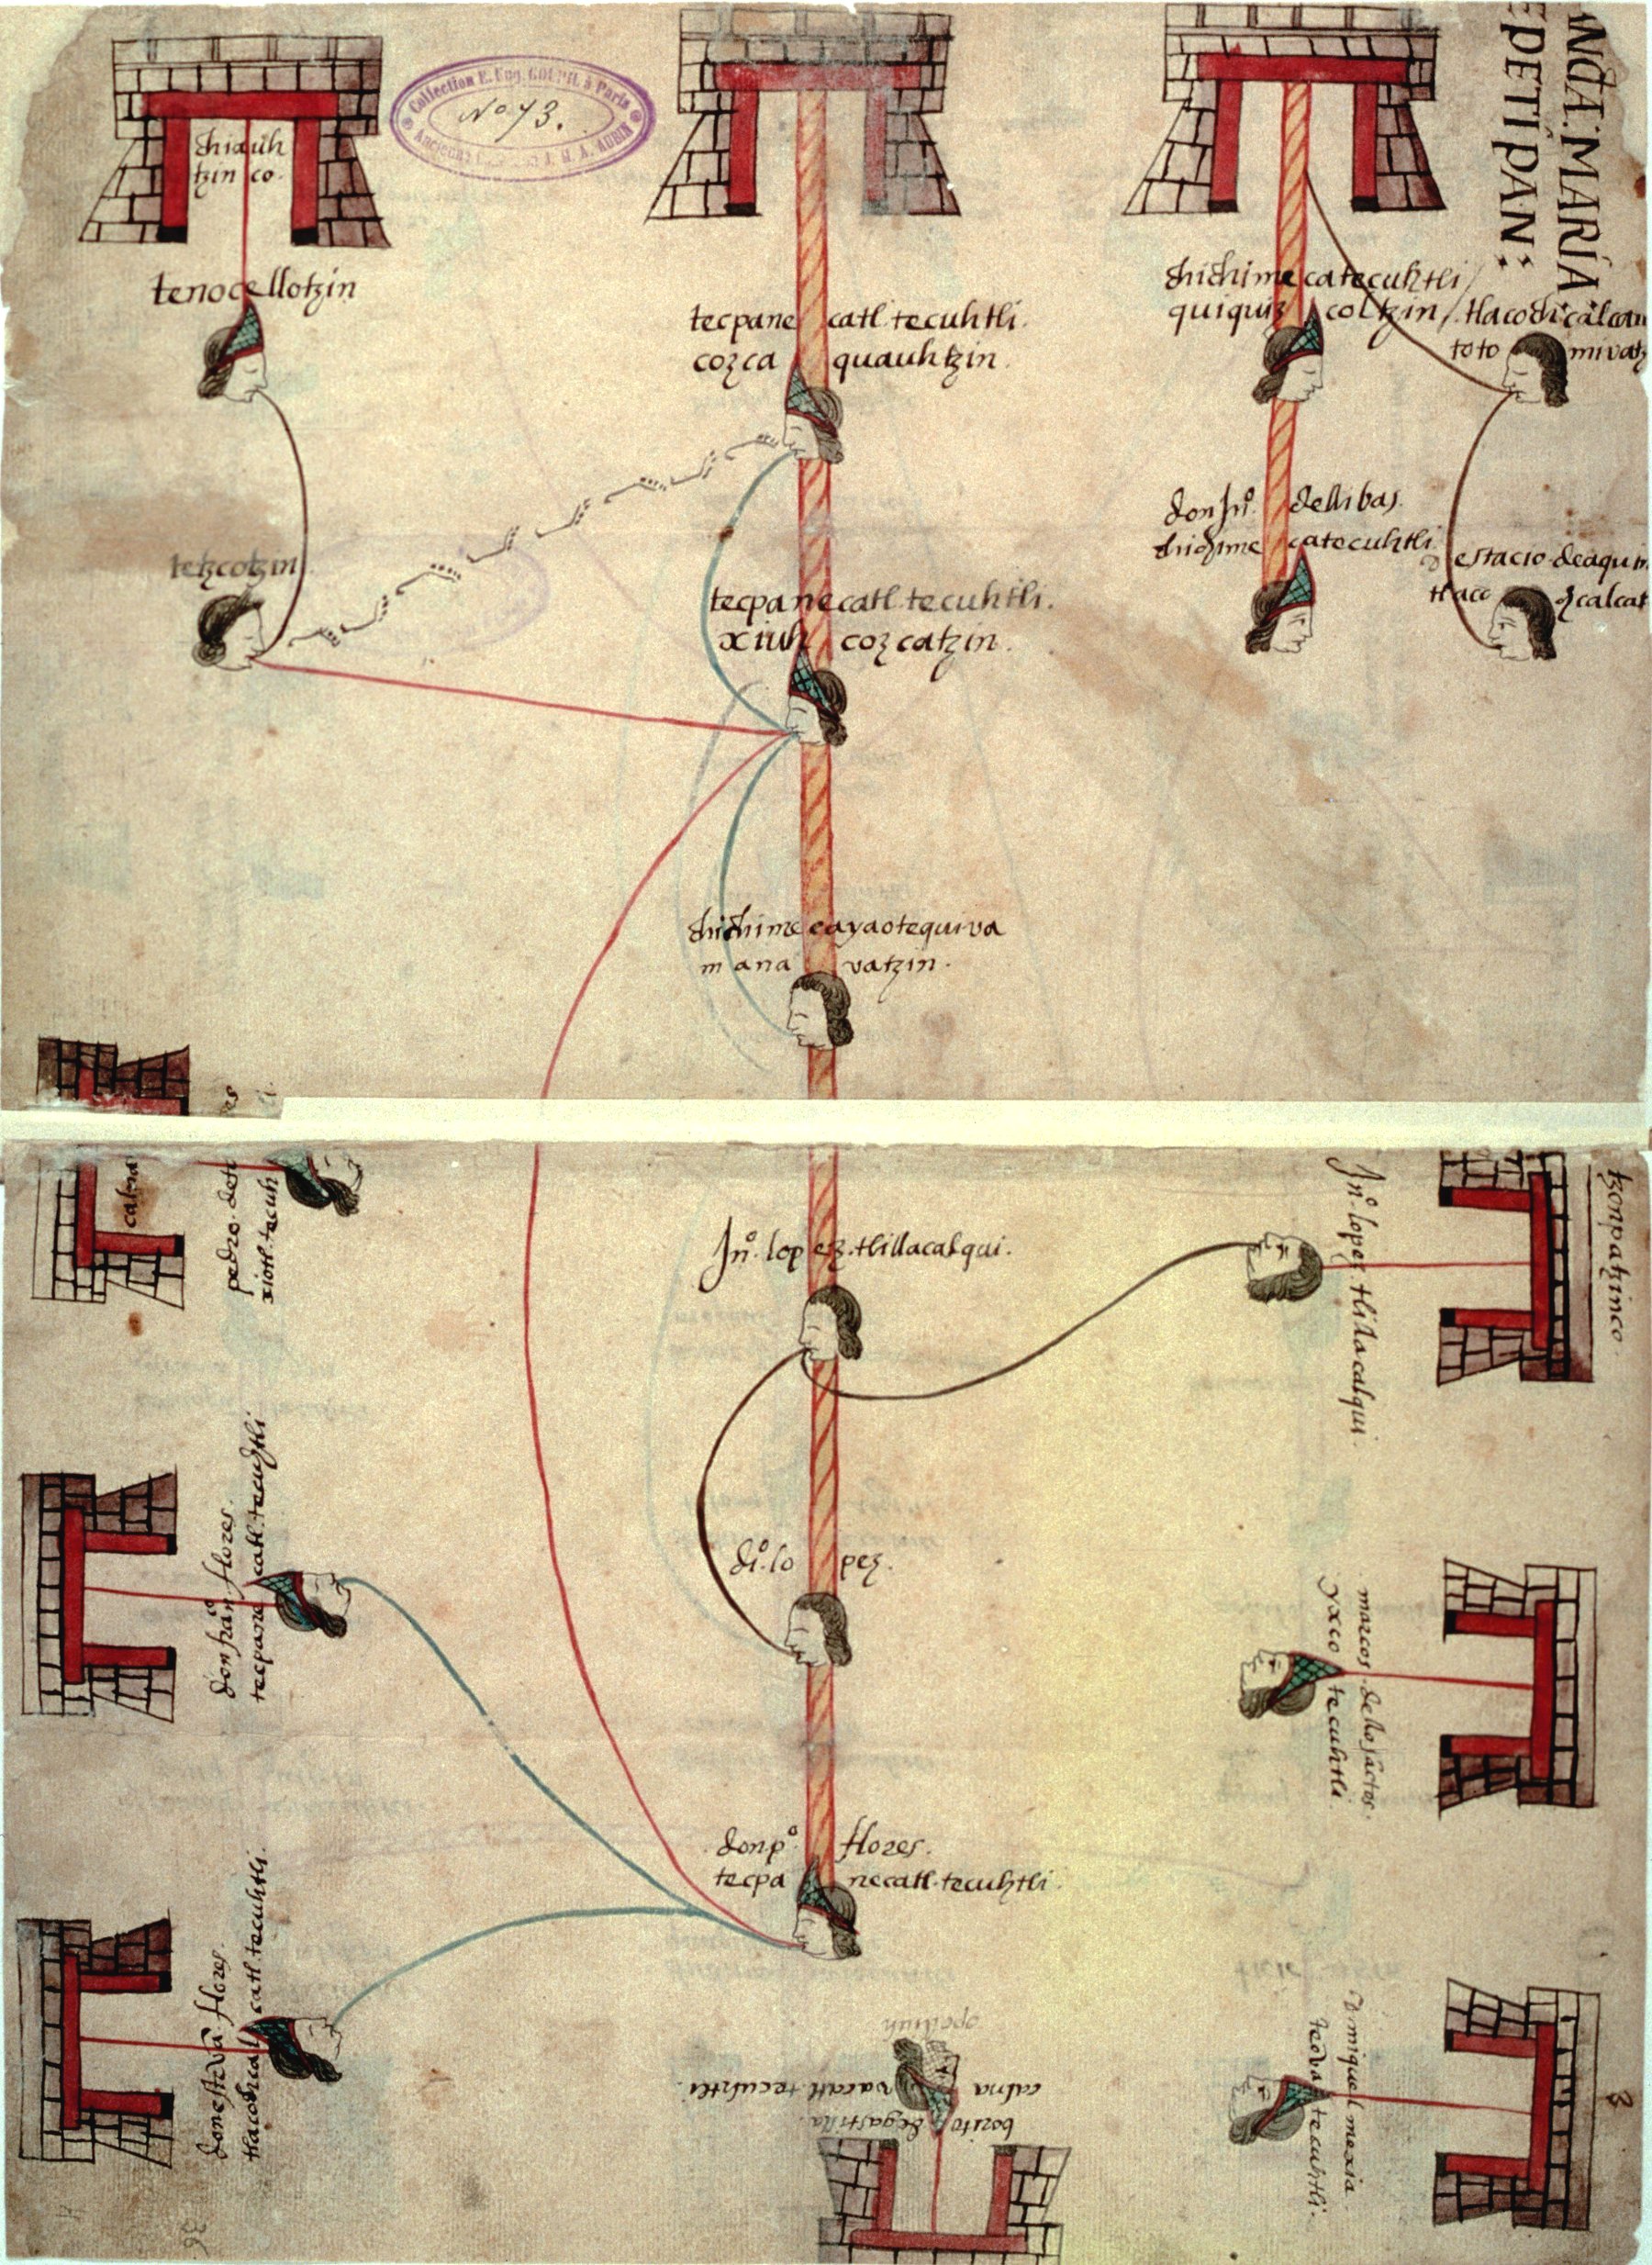 NDA. MARÍA
EPETÍPAN;
Collection E. Eug. GOUPIL à Paris
Nº 73.
Ancienne Collection J. M. A. AUBIN
chiauh
tzin co.
tenocellotzin
tecpanecatl. tecuhtli.
cozcaquauhtzin.
chichimecatecuhtli/
quiquizcoltzin/. tlacochcalcat
toto mivatz
tetzcotzin
tecpanecatl. tecuhtli.
xiuhcozcatzin.
don juº. dellibas.
chichimecatecuhtli
estacio deaquin
tlacochcalcat
chichimecayaotequiva
manavatzin.
calna
pedro. de
xiotl. tecuh
Juº. lopez. tlillacalqui.
Juº. lopez. tlillacalqui.
tzonpatzinco
don franco flores.
tecpanecatl. tecuhtli
dio. lopez.
marcos. dellosactos.
yxcotecuhtli.
donpº. flores.
tecpanecatl. tecuhtli.
donesteva flores.
tlacochcalcatl tecuhtli.
calnavacatl. tecuhtli.
benito degastilla.
d miguel mexia
teova tecuhtli.
3